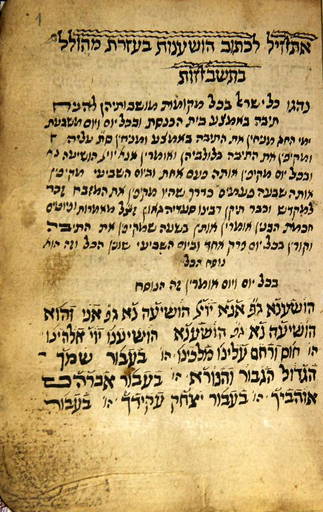 1
אתחיל לכתוב הושענות בעזרת מהולל
בתשבחות
נהגו כל ישראל בכל מקומות מושבותיהן להניח
תיבה באמצע בית הכנסת ובכל יום ויום משבעת
ימי החג מניחין את התיבה באמצע ומניחין ס״ת עליה
ומקיפין את התיבה בלולביהן ואומרין אנא יי׳ הושיעה נא
ובכל יום מקיפין אותה פעם אחת וביום השביעי מקיפין
אותה שבעה פעמים כדרך שהיו מקיפין את המזבח
למקדש וכבר תיקן רבינו סעדיה גאון מאמרות ופיוטים
אותן בשעה שמקיפין את התיבה
וקורין בכל יום פרק אחד וביום השביעי הכל וזה הוא
נוסח הכל
בכל יום ויום אומרין זה הנוסח
הושענא אנא יי׳ הושיעה נא אני והוא
הושיעה נא הושענא הושיענו יי׳ אלהינו
הו׳ חוס ורחם עלינו מלכינו הו׳ בעבור שמך
הגדול הגבור והנורא הו׳ בעבור אברהם
אוהביך הו׳ בעבור יצחק עקידך הו׳ בעבור